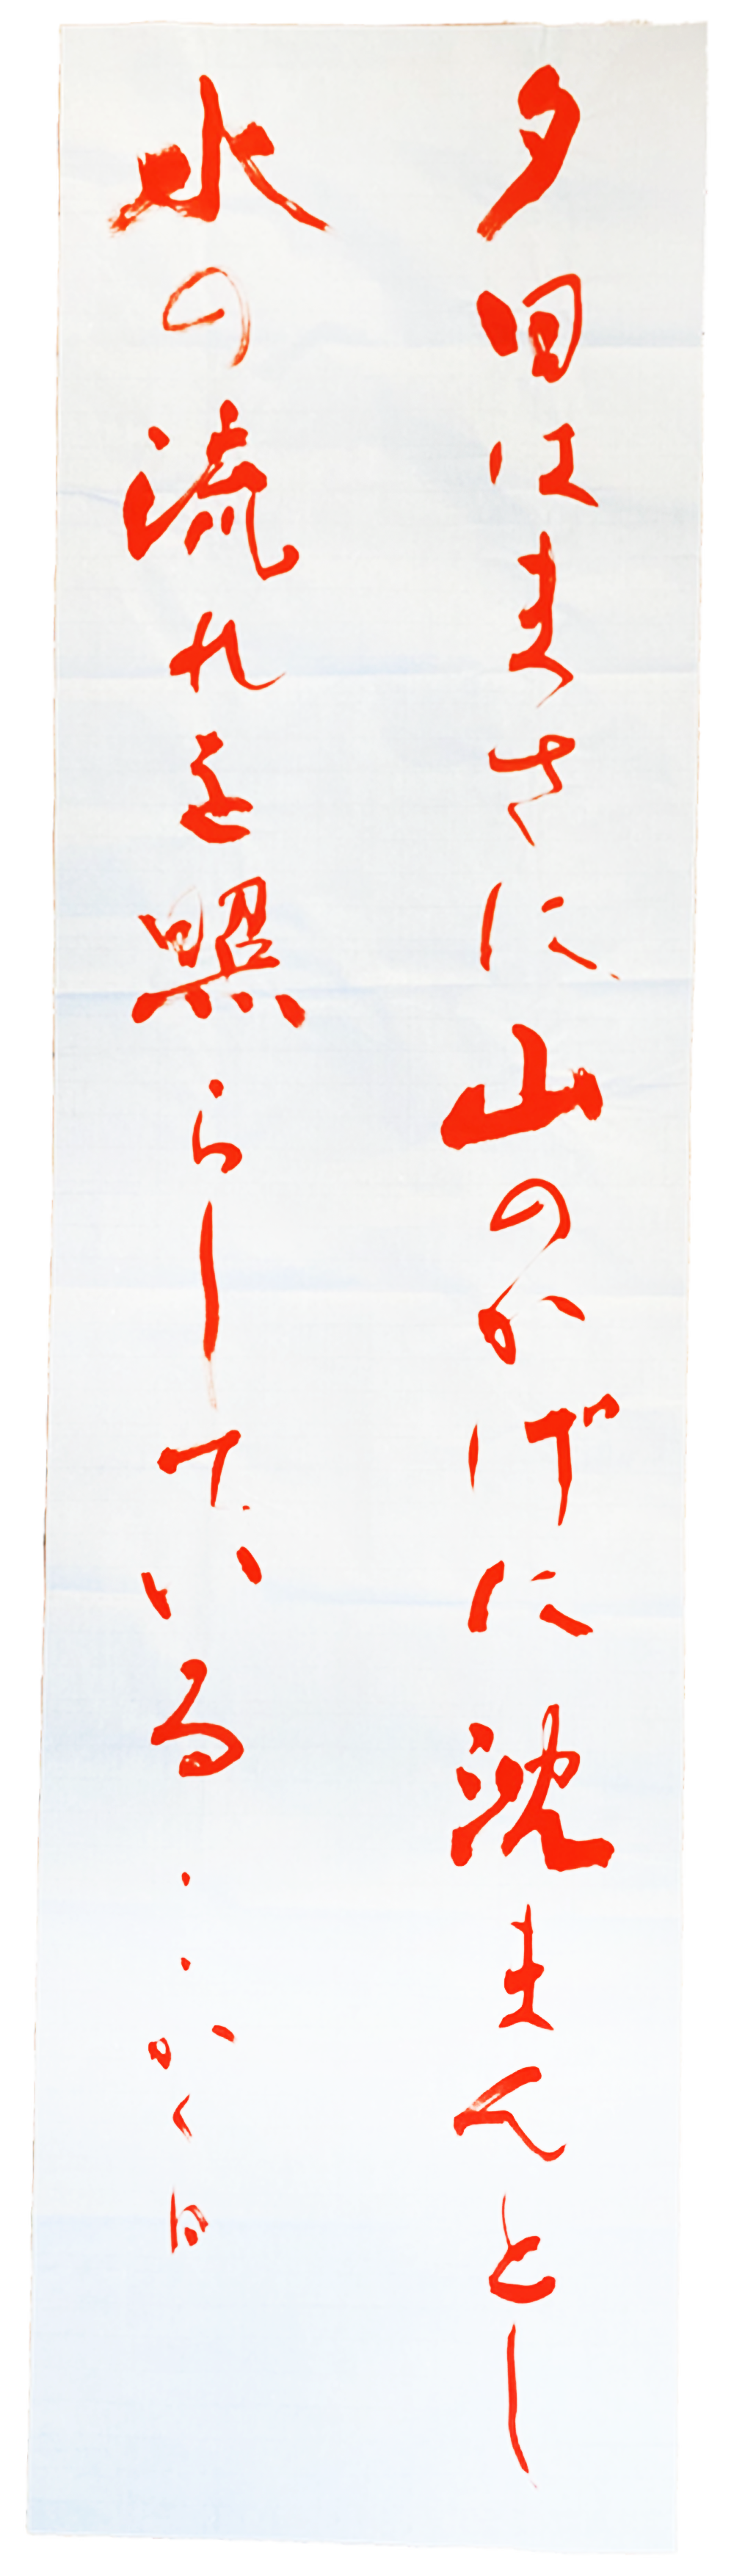 夕日はまさに山のかげに沈まんとし
水の流れを照らしている・・かく日